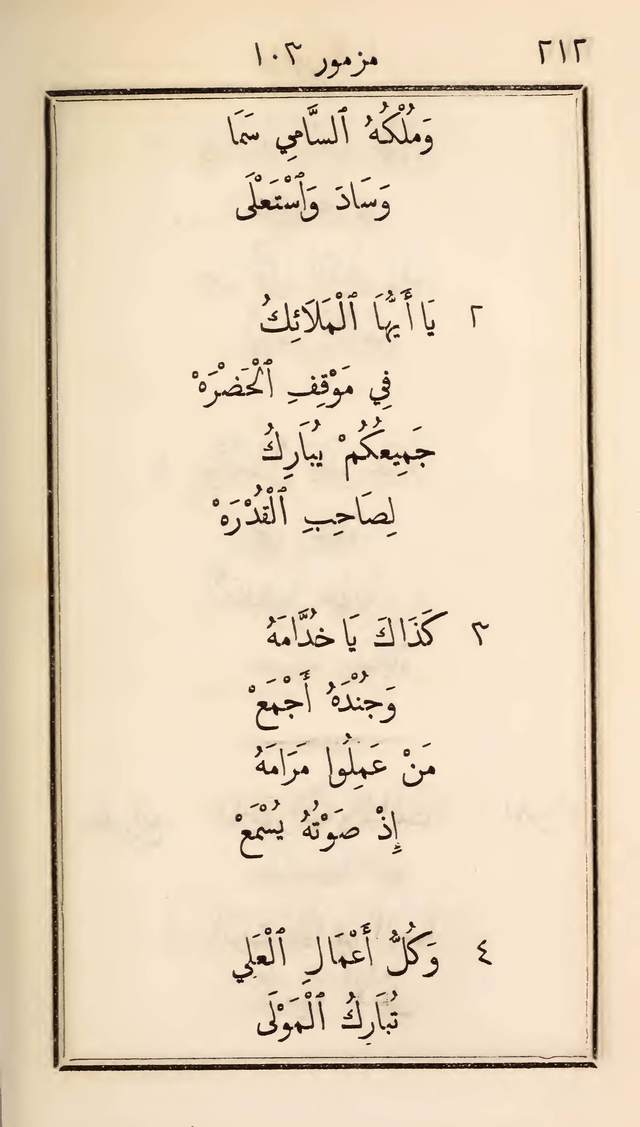 ٢١٢ مزمور ١٠٣
وَمُلْكُهُ ٱلسَّامِي سَمَا
وَسَادَ وَٱسْتَعْلَى
٢ يَا أَيُّهَا ٱلْمَلَائِكُ
فِي مَوْقِفِ ٱلْحَضْرَهْ
جَمِيعُكُمْ يُبَارِكُ
لِصَاحِبِ ٱلْقُدْرَهْ
٣ كَذَاكَ يَا خُدَّامَهُ
وَجُنْدَهُ أَجْمَعْ
مَنْ عَمِلُوا مَرَامَهُ
إِذْ صَوْتُهُ يُسْمَعْ
٤ وَكُلُّ أَعْمَالِ ٱلْعَلِي
تُبَارِكُ ٱلْمَوْلَى